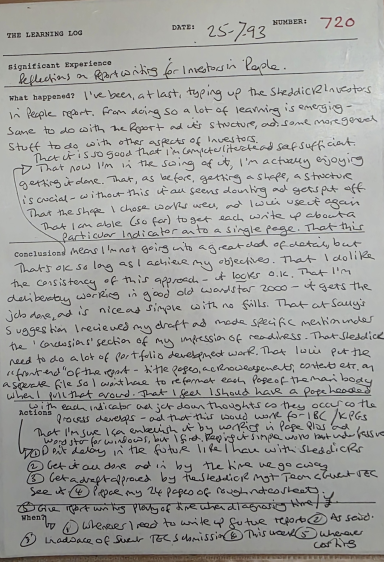 THE LEARNING LOG DATE: 25-7-93 NUMBER: 720
Significant Experience
Reflections on Report writing for Investors in People.
What happened? I've been, at last, typing up the Sheddick Investors
in People report. From doing so a lot of learning is emerging -
some to do with the Report and it's structure, and some more general
stuff to do with other aspects of Investors.
That it is so good that I'm computer literate and self sufficient.
That now I'm in the swing of it, I'm actually enjoying
getting it done. That, as before, getting a shape, a structure
is crucial - without this it all seems daunting and gets put off.
That the shape I chose works well, and I will use it again
That I am able (so far) to get each write up about a
particular Indicator onto a single page. That this
Conclusions means I'm not going into a great deal of detail, but
That's OK so long as I achieve my objectives. That I do like
the consistency of this approach - it looks O.K. That I'm
deliberately working in good old wordstar 2000 - it gets the
job done, and is nice and simple with no frills. That at Sally's
suggestion I reviewed my draft and made specific mention under
the 'conclusions' section of my impression of readiness. That Sheddick
need to do a lot of portfolio development work. That I will put the
"front end" of the report - title pages, acknowledgements, contents etc. on
a separate file so I won't have to reformat each page of the main body
when I put that around. That I feel I should have a page headed
Actions with each indicator and jot down thoughts as they occur as the
process develops - and that this would work for IBC / KPGS
That I'm sure I can embellish it by working in Page Plus and
Wordstar for windows, but I find keeping it simple works
① Don't delay in the future like I have with Sheddicks
② Get it all done and in by the time we go away
③ Get a draft approved by the Sheddick Mgt Team
See it ④ Prepare my 24 pages of rough notes
⑤ Give report writing plenty of time when diagnosing time /
When? ① Whenever I need to write up future reports ② As said.
③ In advance of TEC submission ④ This week ⑤ Whenever
costing